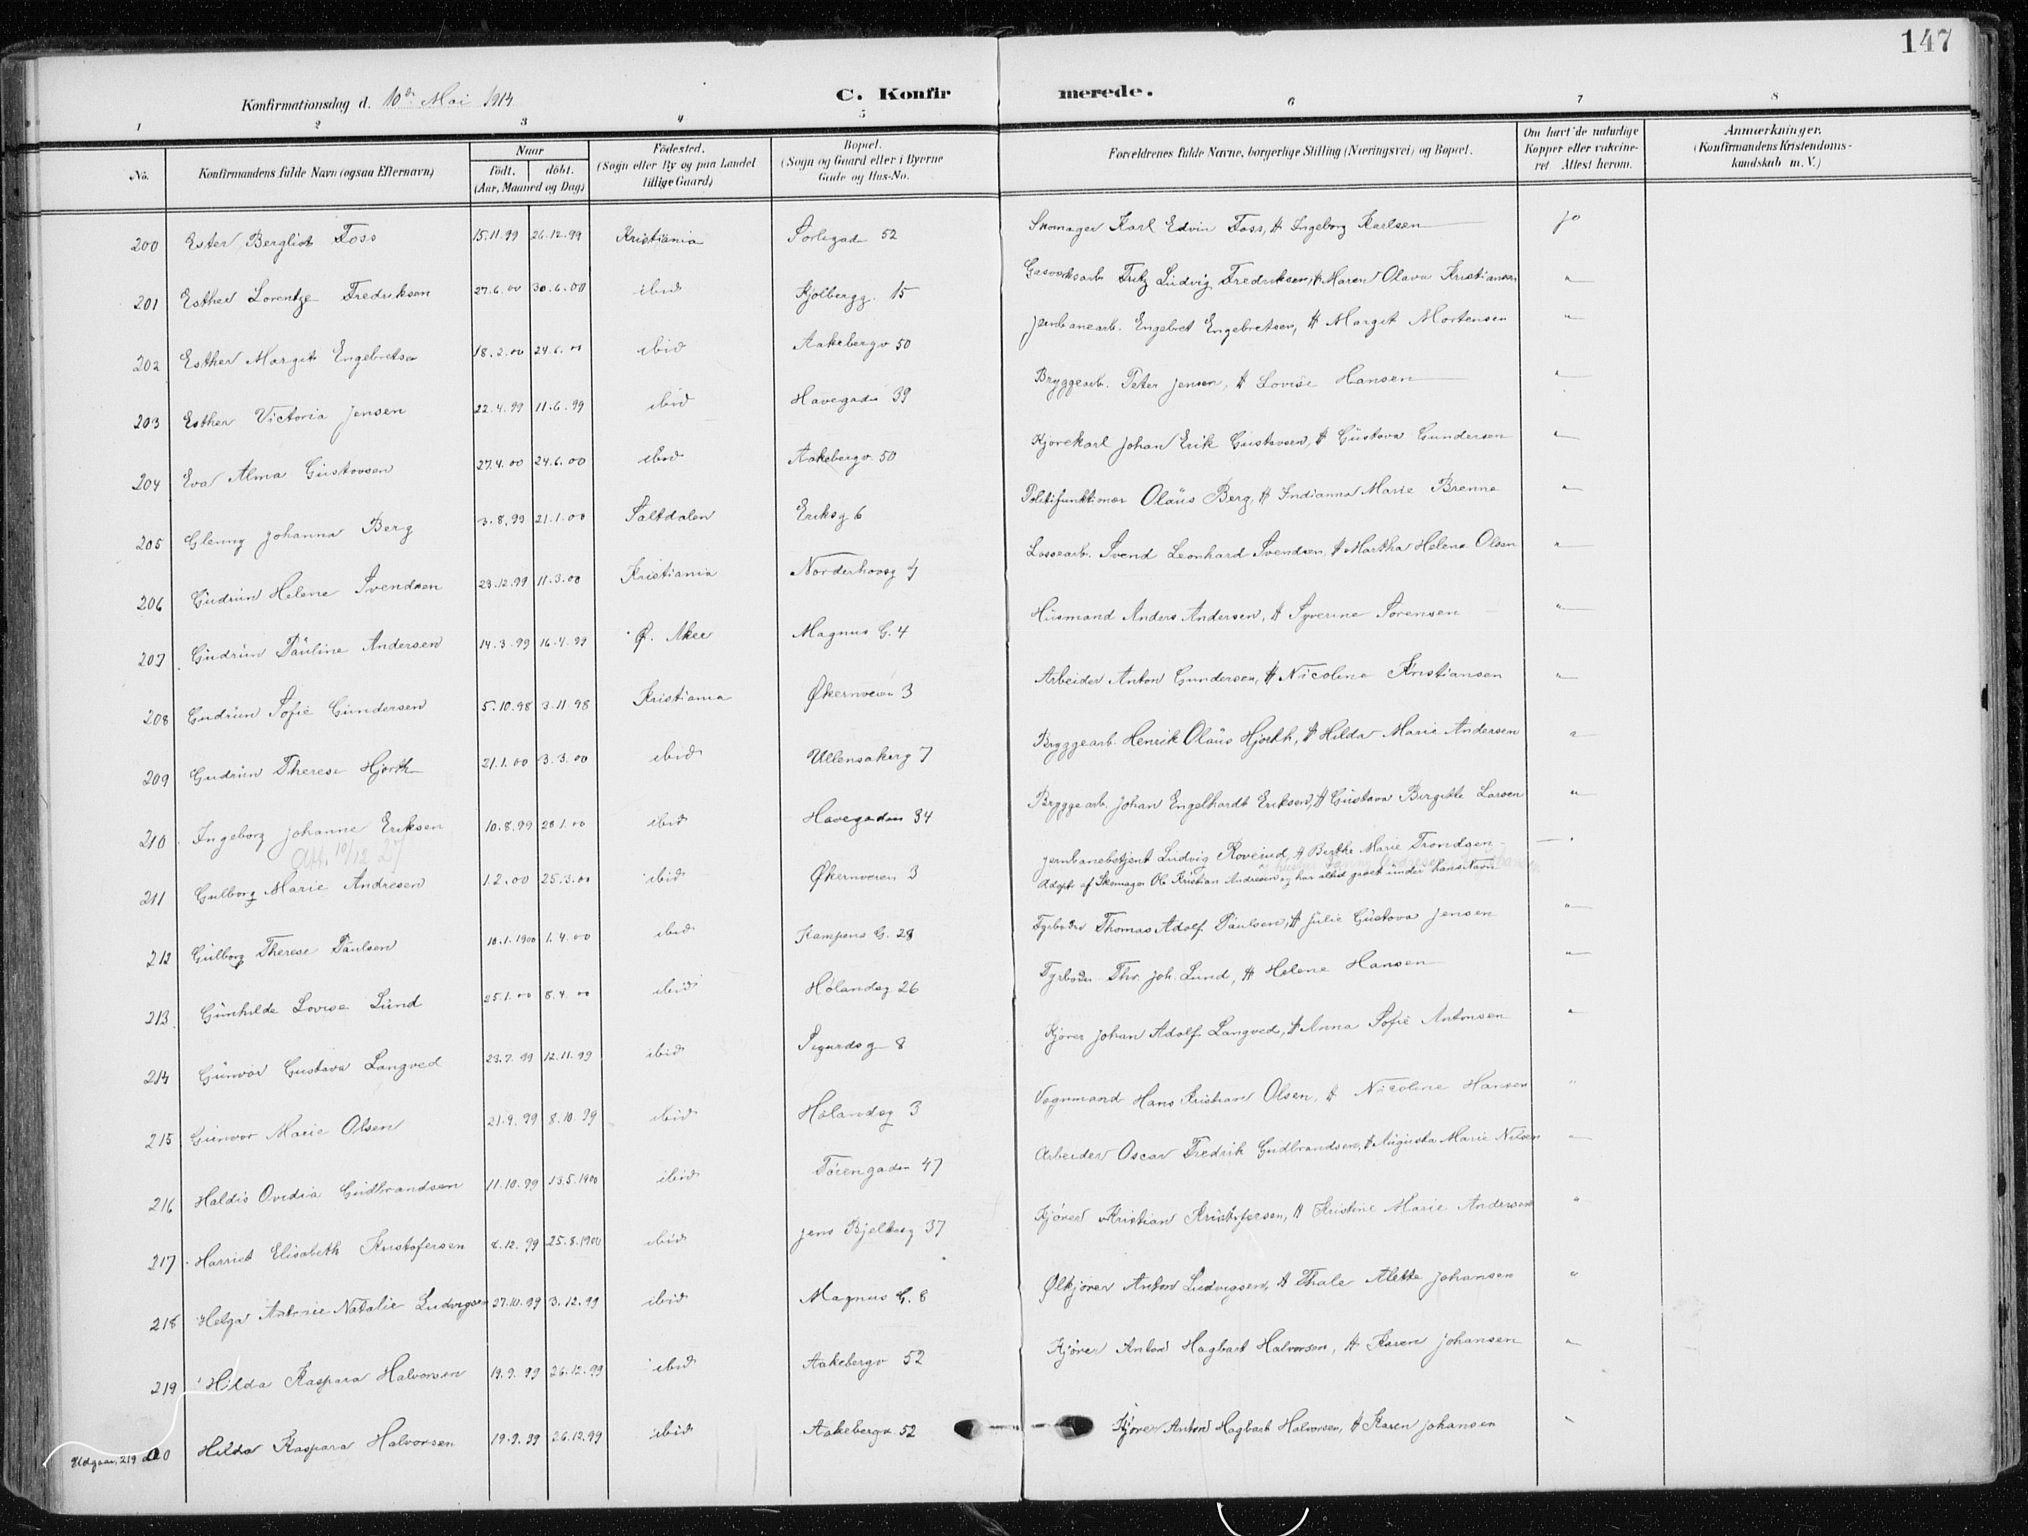 147
Konfirmationsdag d. 10de Mai 1914
C. Konfirmerede.
1 2 3 4 5 6 7 8
No. Konfirmandens fulde Navn (ogsaa Efternavn) Naar født, døbt. (Aar, Maaned og Dag) Fødested. (Sogn eller By og paa Landet tillige Gaard) Bopæl. (Sogn og Gaard eller i Byerne Gade og Hus-No. Forældrenes fulde Navne, borgerlige Stilling (Næringsvei) og Bopæl. Om havt de naturlige Kopper eller vakcineret Attest herom. Anmærkninger. (Konfirmandens Kristendomskundskab m. V.)
200 Ester Bergliot Foss 15.11.99 26.12.99 Kristiania Sørligade 52 Skomager Karl Edvin Foss, H Ingeborg Karlsen ja
201 Esther Lorentze Fredriksen 27.6.00 30.6.00 ibid Kjølbergg. 15 Gasverksarb. Fritz Ludvig Fredriksen, H Maren Olava Kristiansen "
202 Esther Margit Engebretsen 18.2.00 24.6.00 ibid Aakebergv 50 Jernbanearb. Engebret Engebretsen, H Margit Mortensen "
203 Esther Victoria Jensen 22.4.99 11.6.99 ibid Havegaden 39 Bryggearb. Peter Jensen, H Lovise Hansen "
204 Eva Alma Gustavsen 27.4.00 24.6.00 ibid Aakebergv. 50 Kjørekarl Johan Erik Gustavsen, H Gustava Gundersen "
205 Glenny Johanna Berg 3.8.99 21.1.00 Saltdalen Eriksg 6 Politifunktionær Olaus Berg, H Indianna Marie Brenne "
206 Gudrun Helene Svendsen 23.12.99 11.3.00 Kristiania Norderhovsg 7 Lossearb. Svend Leonhard Svendsen, H Martha Helene Olsen "
207 Gudrun Pauline Andersen 14.3.99 16.4.99 Ø. Aker Magnus G. 4 Husmand Anders Andersen, H Syverine Sørensen "
208 Gudrun Sofie Gundersen 5.10.98 3.11.98 Kristiania Økernveien 3 Arbeider Anton Gundersen, H Nicoline Kristiansen "
209 Gudrun Therese Hjorth 21.1.00 3.3.00 ibid Ullensakerg 7 Bryggearb. Henrik Olaus Hjorth, H Hilda Marie Andersen "
210 Ingeborg Johanne Eriksen 10.8.99 28.1.00 ibid Havegaden 34 Bryggearb. Johan Engelhardt Eriksen, H Gustava Birgitte Larsen "
Att. 10/12 27
211 Gulborg Marie Andresen 1.2.00 25.3.00 ibid Økernveien 3 Jernbanebetjent Ludvig Roverud, H Berthe Marie Trondsen "
Adopt. af Skomager Ole Kristian Andresen og har altid gaaet under hans Navn
212 Gulborg Therese Paulsen 10.1.1900 1.4.00 ibid Kampens G. 28 Fyrbøder Thomas Adolf Paulsen, H Julie Gustava Jensen "
213 Gunhilde Lovise Lund 25.1.00 8.4.00 ibid Hølandsg 26 Fyrbøder Thv. Joh. Lund, H Helene Hansen "
214 Gunvor Gustava Langved 23.7.99 12.11.99 ibid Sigurdsg 8 Kjører Johan Adolf Langved, H Anna Sofie Antonsen "
215 Gunvor Marie Olsen 21.9.99 8.10.99 ibid Hølandsg 3 Vognmand Hans Kristian Olsen, H Nicoline Hansen "
216 Haldis Ovidia Gudbrandsen 11.10.99 13.5.1900 ibid Tøiengaden 47 Arbeider Oscar Fredrik Gudbrandsen, H Augusta Marie Nilsen "
217 Harriet Elisabeth Kristofersen 8.12.99 25.8.1900 ibid Jens Bjelkesg 37 Kjører Kristian Kristofersen, H Kristine Marie Andersen "
218 Helga Antonie Natalie Ludvigsen 27.10.99 3.12.99 ibid Magnus G. 8 Ølkjører Anton Ludvigsen, H Thale Alette Johansen "
219 Hilda Kaspara Halvorsen 19.9.99 26.12.99 ibid Aakebergv 52 Kjører Anton Hagbart Halvorsen, H Karen Johansen "
Udgaar, 219 220 Hilda Kaspara Halvorsen 19.9.99 26.12.99 ibid Aakebergv. 52 Kjører Anton Hagbart Halvorsen, H Karen Johansen "